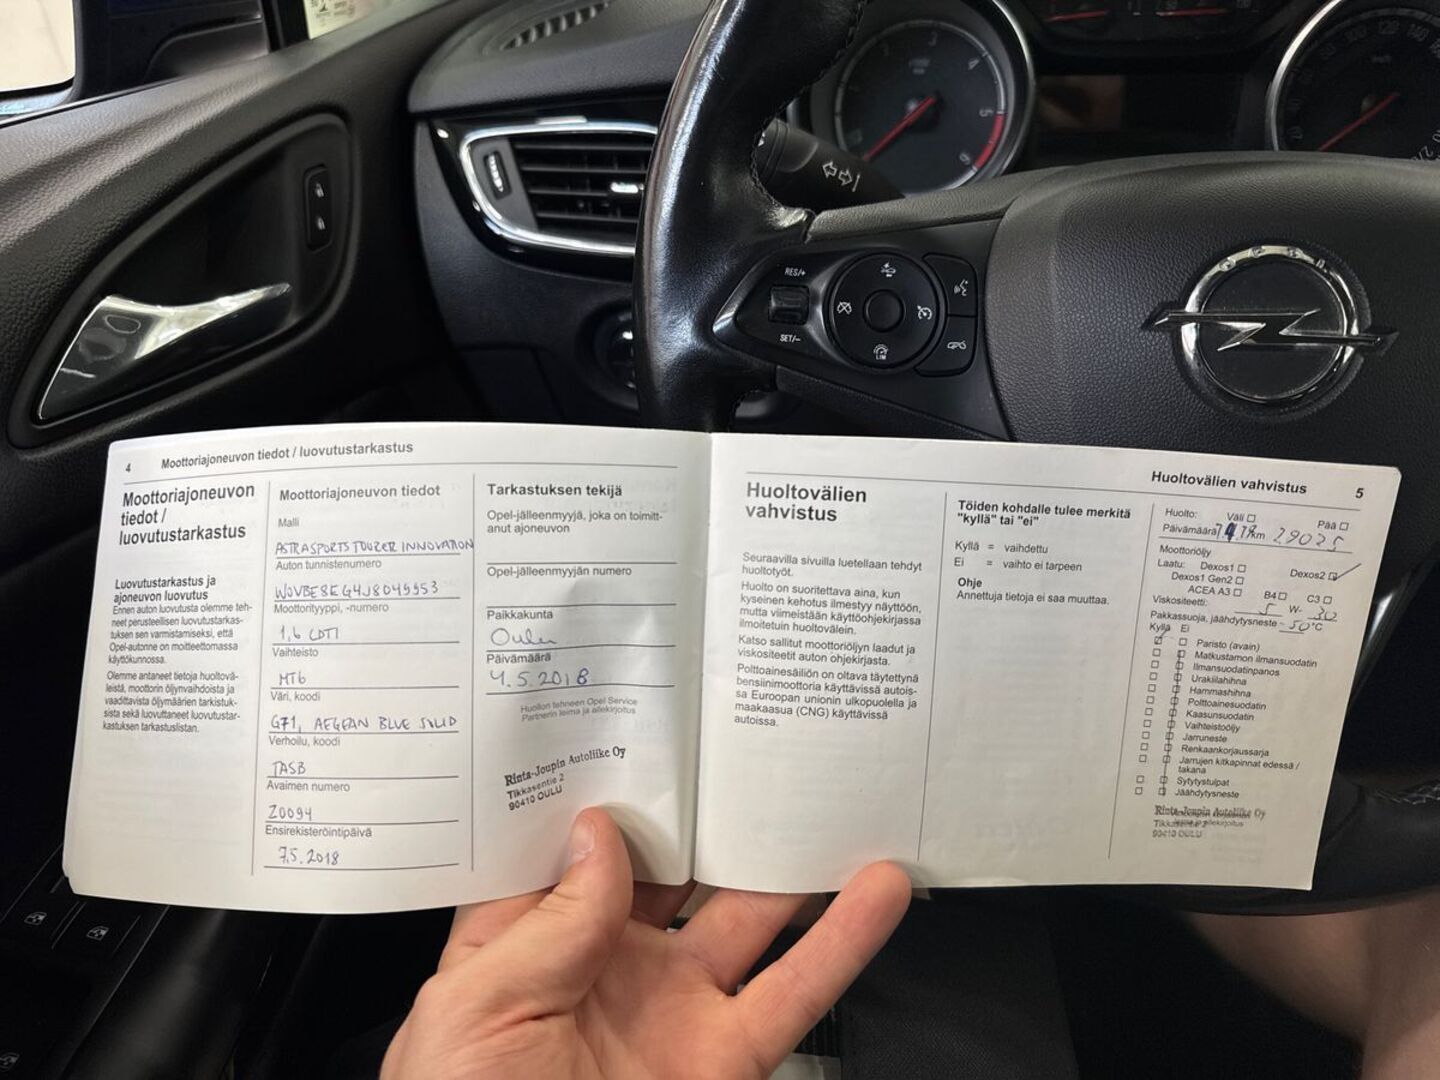 RES/+
SET/–
LIM
OPEL
4 Moottoriajoneuvon tiedot / luovutustarkastus
Moottoriajoneuvon
tiedot /
luovutustarkastus
Luovutustarkastus ja
ajoneuvon luovutus
Ennen auton luovutusta olemme teh-
neet perusteellisen luovutustarkas-
tuksen sen varmistamiseksi, että
Opel-autonne on moitteettomassa
käyttökunnossa.
Olemme antaneet tietoja huoltovä-
leistä, moottorin öljynvaihdosta ja
vaadittavista öljymäärien tarkistuk-
sista sekä luovuttaneet luovutustar-
kastuksen tarkastuslistan.
Moottoriajoneuvon tiedot
Malli
ASTRA SPORTS TOURER INNOVATION
Auton tunnistenumero
Moottorityyppi, -numero
1,6 CDTI
Vaihteisto
MT6
Väri, koodi
G71, AEGEAN BLUE SOLID
Verhoilu, koodi
TASB
Avaimen numero
Z0094
Ensirekisteröintipäivä
7.5.2018
Tarkastuksen tekijä
Opel-jälleenmyyjä, joka on toimitt-
anut ajoneuvon
Opel-jälleenmyyjän numero
Paikkakunta
Oulu
Päivämäärä
4.5.2018
Huollon tehneen Opel Service
Partnerin leima ja allekirjoitus
Rinta-Joupin Autoliike Oy
Tikkasentie 2
90410 OULU
Huoltovälien vahvistus 5
Huoltovälien
vahvistus
Seuraavilla sivuilla luetellaan tehdyt
huoltotyöt.
Huolto on suoritettava aina, kun
kyseinen kehotus ilmestyy näyttöön,
mutta viimeistään käyttöohjekirjassa
ilmoitetuin huoltovälein.
Katso sallitut moottoriöljyn laadut ja
viskositeetit auton ohjekirjasta.
Polttoainesäiliön on oltava täytettynä
bensiinimoottoria käyttävissä autois-
sa Euroopan unionin ulkopuolella ja
maakaasua (CNG) käyttävissä
autoissa.
Töiden kohdalle tulee merkitä
"kyllä" tai "ei"
Kyllä = vaihdettu
Ei = vaihto ei tarpeen
Ohje
Annettuja tietoja ei saa muuttaa.
Huolto: Väli Pää
Päivämäärä km 29025
Moottoriöljy
Laatu: Dexos1 Dexos2
Dexos1 Gen2
ACEA A3 B4 C3
Viskositeetti: 5 W- 30
Pakkassuoja, jäähdytysneste - 50 °C
Kyllä Ei
Paristo (avain)
Matkustamon ilmansuodatin
Ilmansuodatinpanos
Urakiilahihna
Hammashihna
Polttoainesuodatin
Kaasunsuodatin
Vaihteistoöljy
Jarruneste
Renkaankorjaussarja
Jarrujen kitkapinnat edessä /
takana
Sytytystulpat
Jäähdytysneste
Rinta-Joupin Autoliike Oy
Tikkasentie 2
90410 OULU